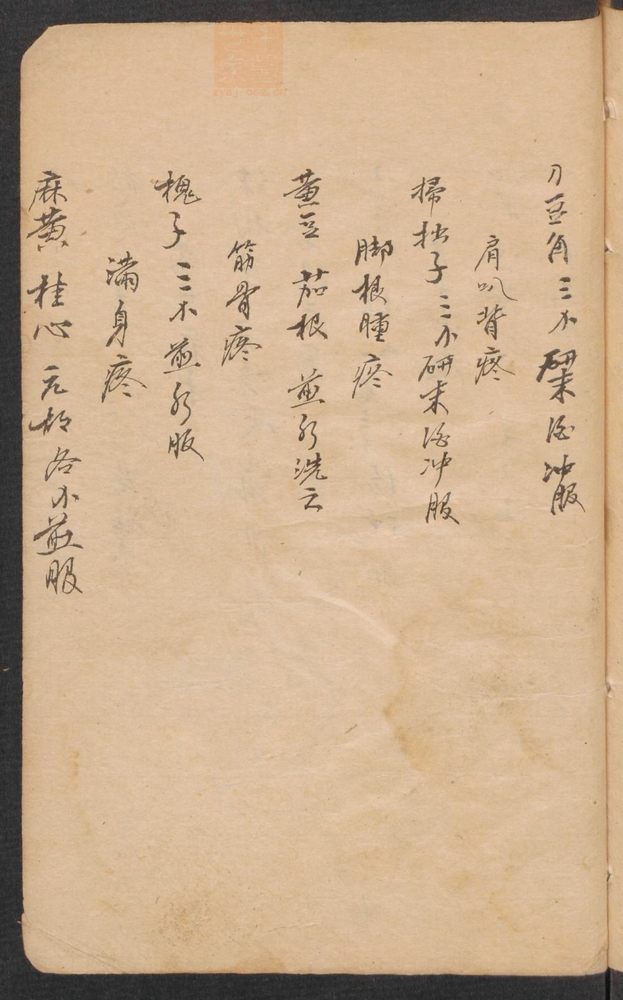 刀豆角三小研末酒冲服
肩叭背疼
掃拙子三小研末酒冲服
脚根腫疼
黃豆 茄根 煎水洗之
筋骨疼
槐子三小煎水服
滿身疼
麻黃 桂心 元胡各小煎服